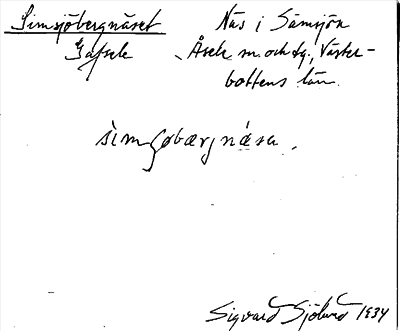 Simsjöbergnäset
Gafsele
Näs i Sämsjön
Åsele sn. och tg., Väster-
bottens län.
sìmʃøbærjnä́sa.
Sigvard Sjölund 1934